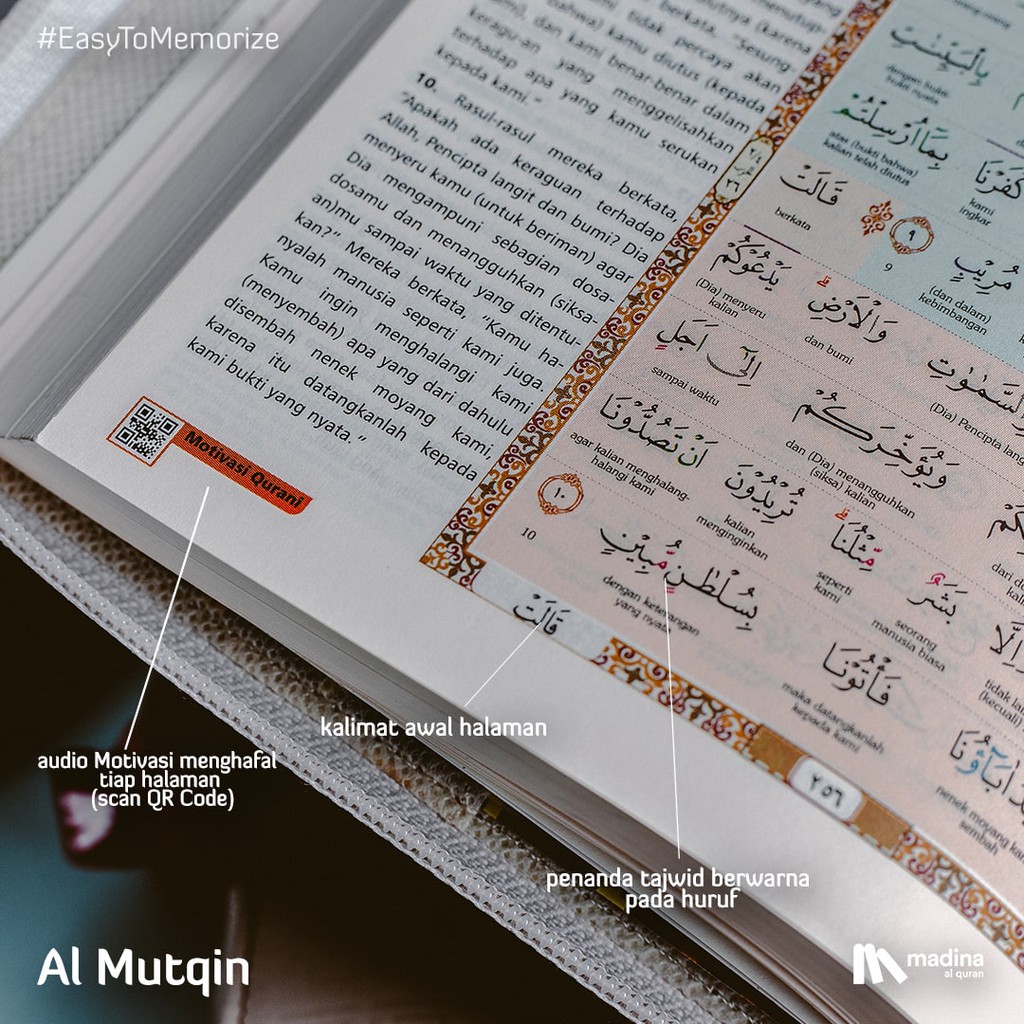 #EasyToMemorize
menutup
(karena
berkata, "Sesung-
bahwa) kamu diutus (kepada
tidak percaya akan
dan kami benar-benar dalam
keraguan yang menggelisahkan
terhadap apa yang kamu serukan
kepada kami."
10. Rasul-rasul mereka berkata,
"Apakah ada keraguan terhadap
Allah, Pencipta langit dan bumi? Dia
menyeru kamu (untuk beriman) agar
Dia mengampuni sebagian dosa-
dosamu dan menangguhkan (siksa-
an)mu sampai waktu yang ditentu-
kan?" Mereka berkata, "Kamu ha-
nyalah manusia seperti kami juga.
Kamu ingin menghalangi kami
(menyembah) apa yang dari dahulu
disembah nenek moyang kami,
karena itu datangkanlah kepada
kami bukti yang nyata."
Motivasi Qurani
بِالْبَيِّنٰتِ
dengan bukti-
bukti nyata
كَفَرْنَا بِمَآ اُرْسِلْتُمْ
kami
ingkar
atas (bukti bahwa)
kalian telah diutus
مُرِيْبٍ ٩ قَالَتْ
(dan dalam)
kebimbangan
9
berkata
السَّمٰوٰتِ وَالْاَرْضِ يَدْعُوْكُمْ
(Dia) Pencipta
dan bumi
(Dia) menyeru
kalian
وَيُؤَخِّرَكُمْ اِلٰٓى اَجَلٍ
dan (Dia) menangguhkan
(siksa) kalian
sampai waktu
بَشَرٌ مِّثْلُنَا تُرِيْدُوْنَ اَنْ تَصُدُّوْنَا
seorang
manusia biasa
seperti
kami
kalian
menginginkan
agar kalian menghalang-
halangi kami
اٰبَاۤؤُنَا فَأْتُوْنَا بِسُلْطٰنٍ مُّبِيْنٍ ١٠
nenek moyang
sembah
maka datangkanlah
kepada kami
dengan keterangan
yang nyata
10
قَالَتْ
٢٥٦
kalimat awal halaman
audio Motivasi menghafal
tiap halaman
(scan QR Code)
penanda tajwid berwarna
pada huruf
Al Mutqin
madina
al quran